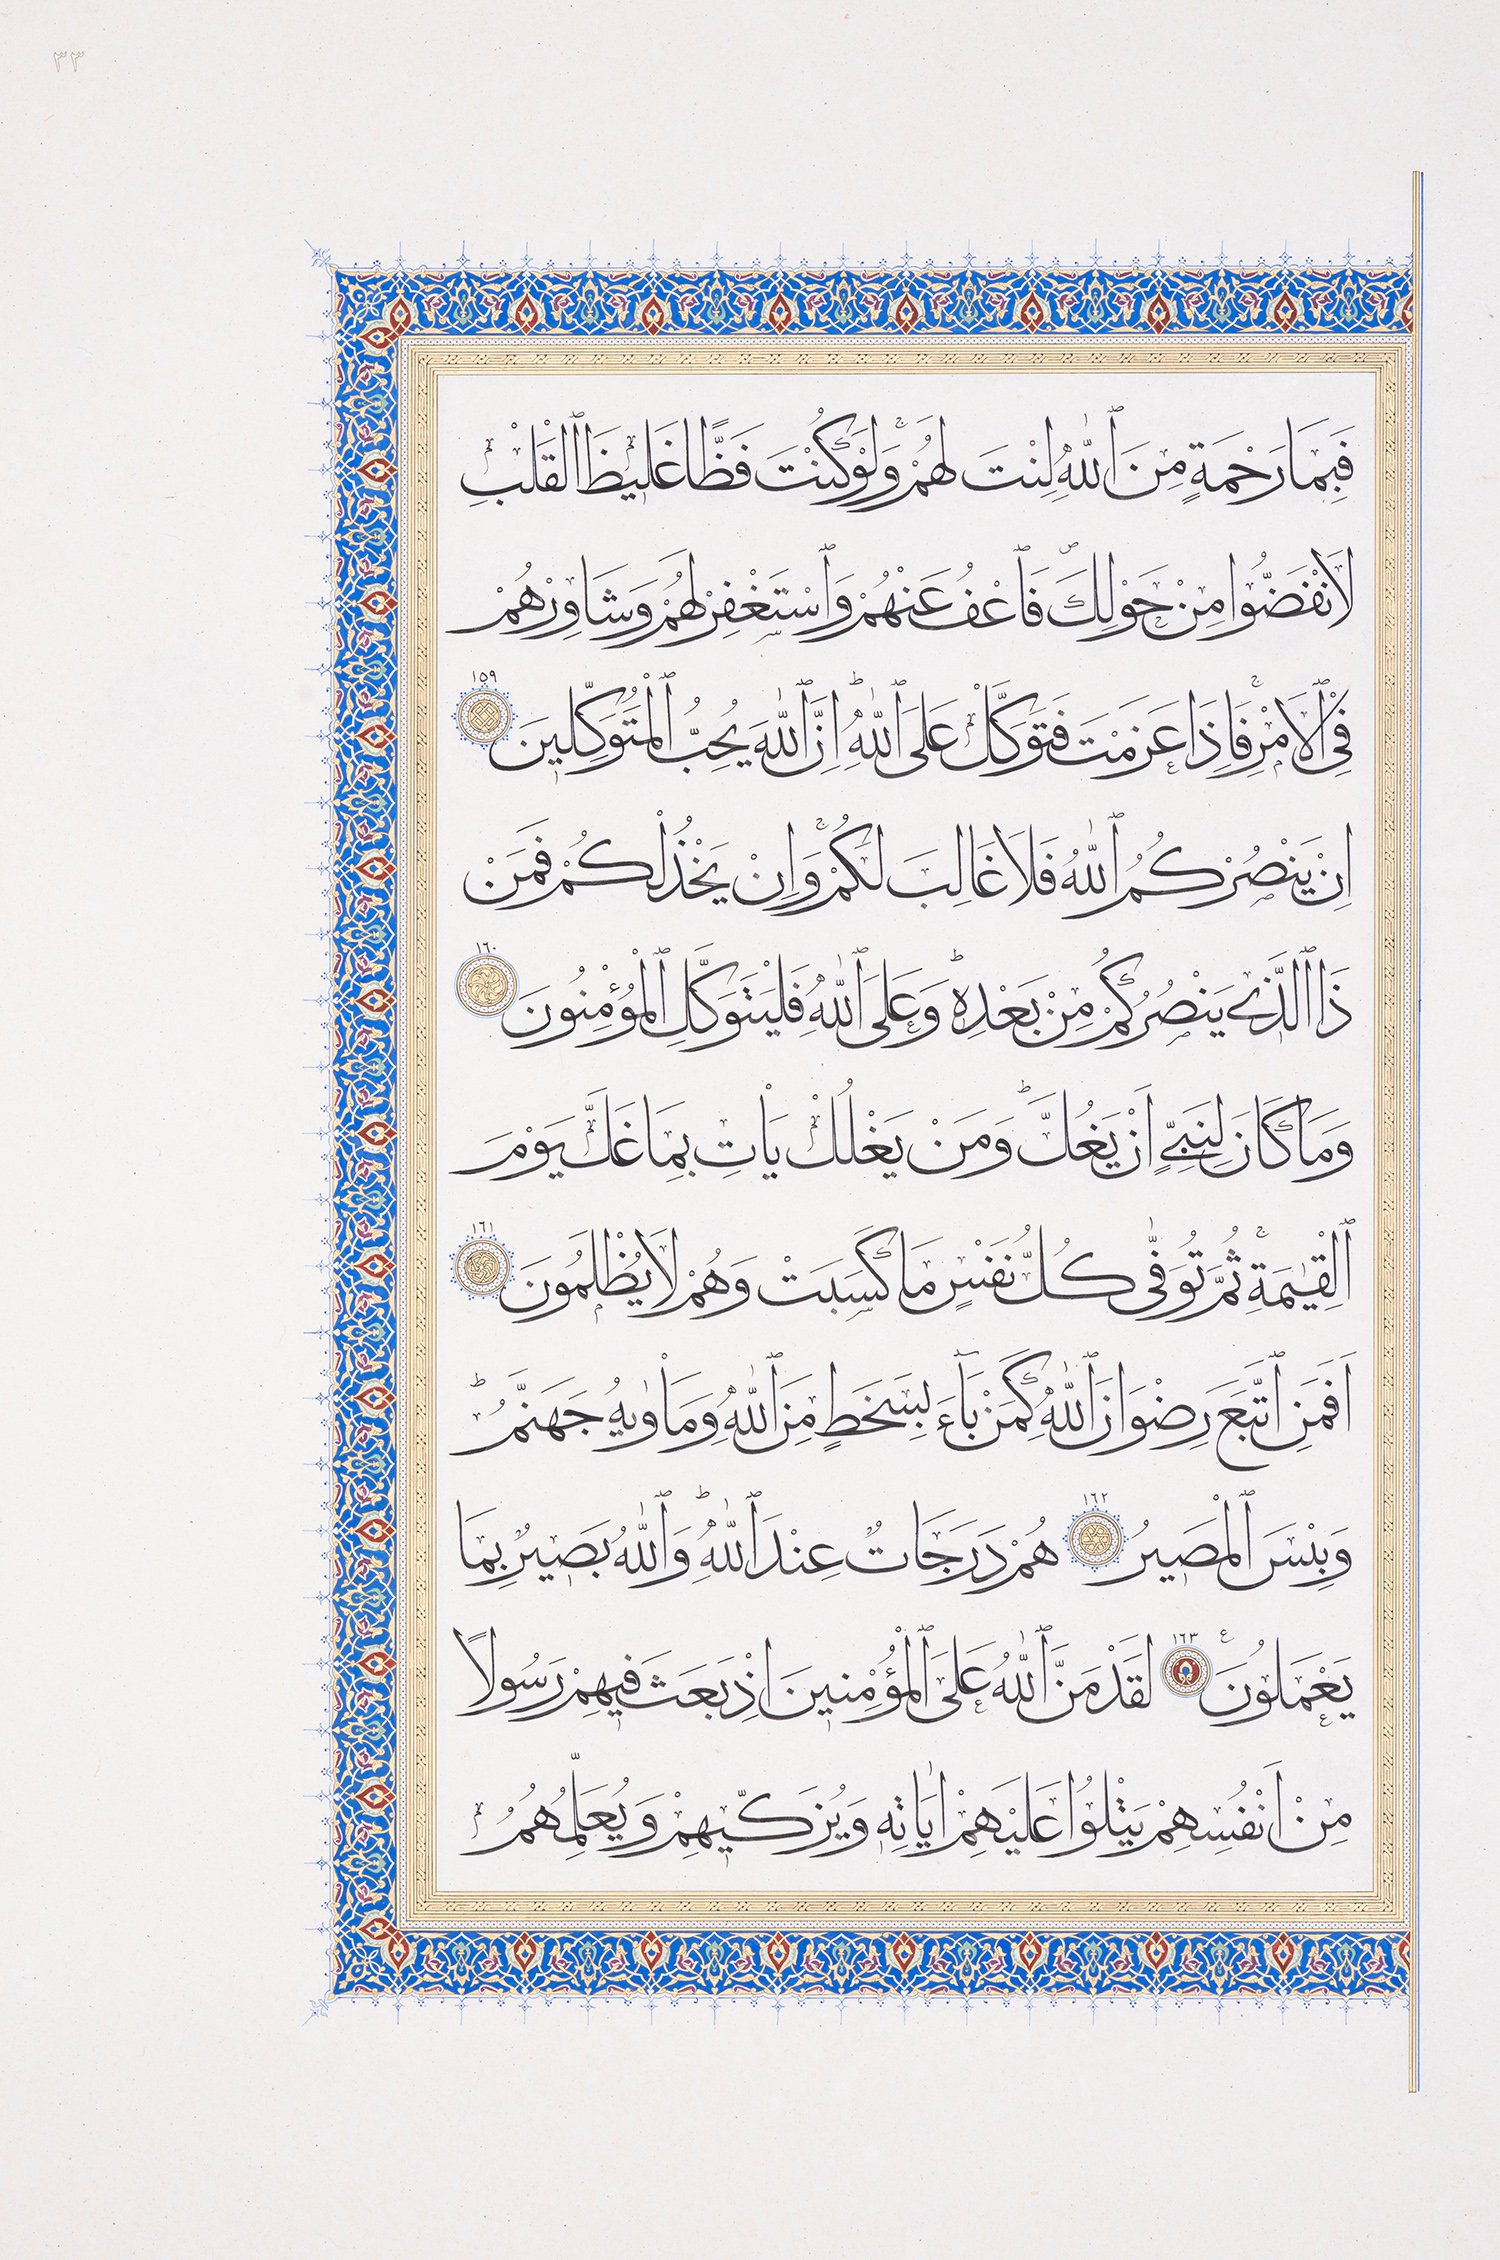 ٣٣
فَبِمَا رَحْمَةٍ مِنَ ٱللّٰهِ لِنْتَ لَهُمْۚ وَلَوْ كُنْتَ فَظًّا غَلٖيظَ ٱلْقَلْبِ
لَانْفَضُّوا مِنْ حَوْلِكَۖ فَٱعْفُ عَنْهُمْ وَٱسْتَغْفِرْ لَهُمْ وَشَاوِرْهُمْ
فِى ٱلْاَمْرِۚ فَاِذَا عَزَمْتَ فَتَوَكَّلْ عَلَى ٱللّٰهِؕ اِنَّ ٱللّٰهَ يُحِبُّ ٱلْمُتَوَكِّلٖينَ ١٥٩
اِنْ يَنْصُرْكُمُ ٱللّٰهُ فَلَا غَالِبَ لَكُمْۚ وَاِنْ يَخْذُلْكُمْ فَمَنْ
ذَا ٱلَّذٖى يَنْصُرُكُمْ مِنْ بَعْدِهٖؕ وَعَلَى ٱللّٰهِ فَلْيَتَوَكَّلِ ٱلْمُؤْمِنُونَ ١٦٠
وَمَا كَانَ لِنَبِىٍّ اَنْ يَغُلَّؕ وَمَنْ يَغْلُلْ يَاْتِ بِمَا غَلَّ يَوْمَ
ٱلْقِيٰمَةِۚ ثُمَّ تُوَفّٰى كُلُّ نَفْسٍ مَا كَسَبَتْ وَهُمْ لَا يُظْلَمُونَ ١٦١
اَفَمَنِ ٱتَّبَعَ رِضْوَانَ ٱللّٰهِ كَمَنْ بَٓاءَ بِسَخَطٍ مِنَ ٱللّٰهِ وَمَاْوٰيهُ جَهَنَّمُؕ
وَبِئْسَ ٱلْمَصٖيرُ ١٦٢ هُمْ دَرَجَاتٌ عِنْدَ ٱللّٰهِؕ وَٱللّٰهُ بَصٖيرٌ بِمَا
يَعْمَلُونَ ١٦٣ لَقَدْ مَنَّ ٱللّٰهُ عَلَى ٱلْمُؤْمِنٖينَ اِذْ بَعَثَ فٖيهِمْ رَسُولًا
مِنْ اَنْفُسِهِمْ يَتْلُوا عَلَيْهِمْ اٰيَاتِهٖ وَيُزَكّٖيهِمْ وَيُعَلِّمُهُمُ